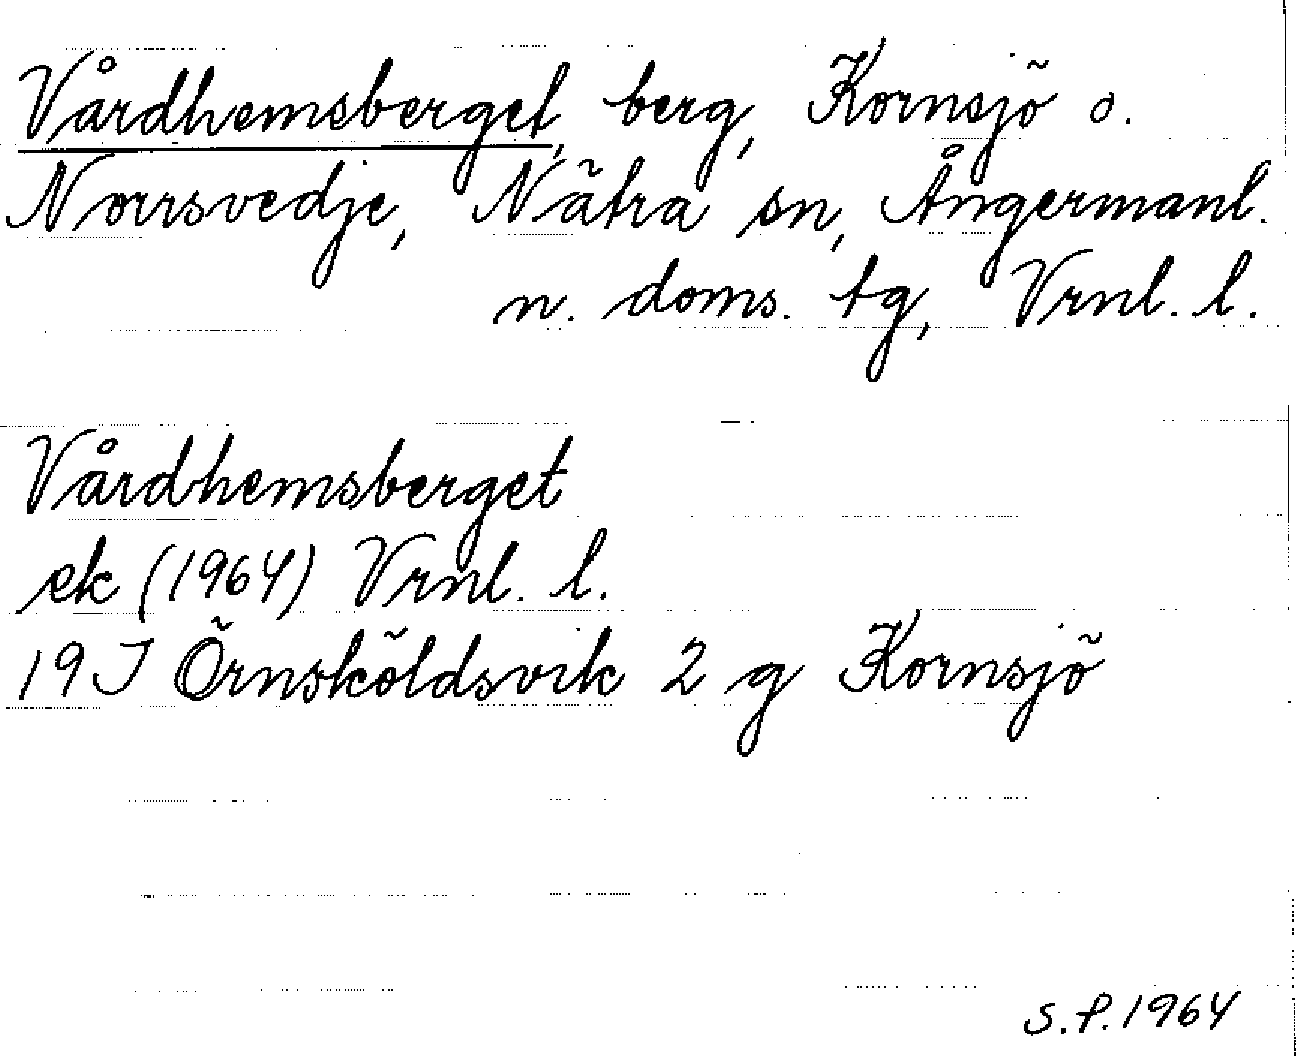 Vårdhemsberget, berg, Kornsjö o.
Norrsvedje, Nätra sn, Ångermanl.
n. doms. tg, Vrnl. l.
Vårdhemsberget
ek (1964) Vrnl. l.
19J Örnsköldsvik 2 g Kornsjö
S.P. 1964